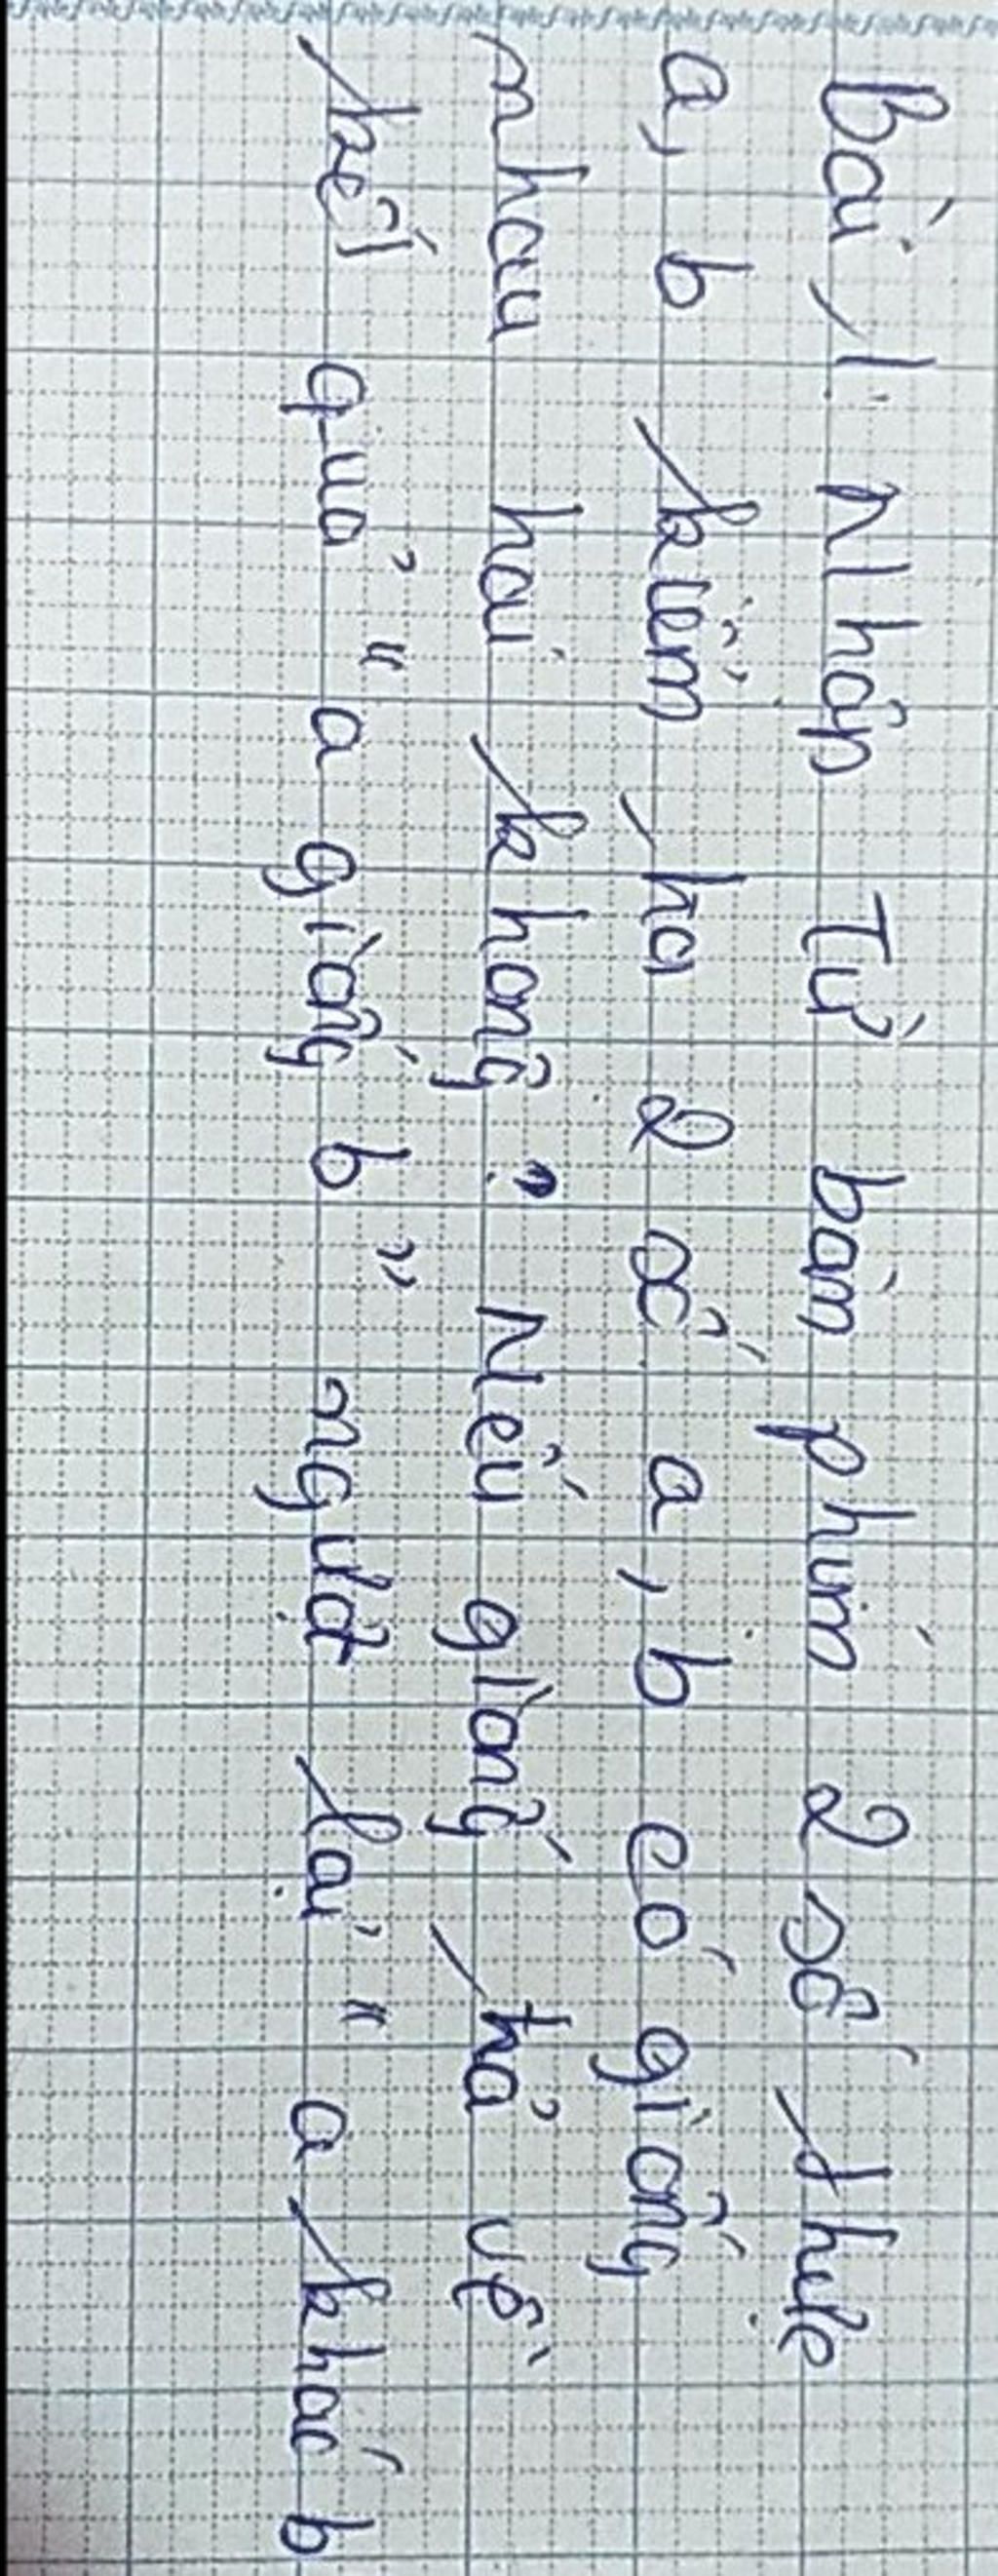 Bài 1: Nhập Từ bàm phím 2 số thực
a, b kiểm tra 2 số a, b có giống
nhau hai không? Nếu giống trả về
kết quả " a giống b " ngược lại " a khác b